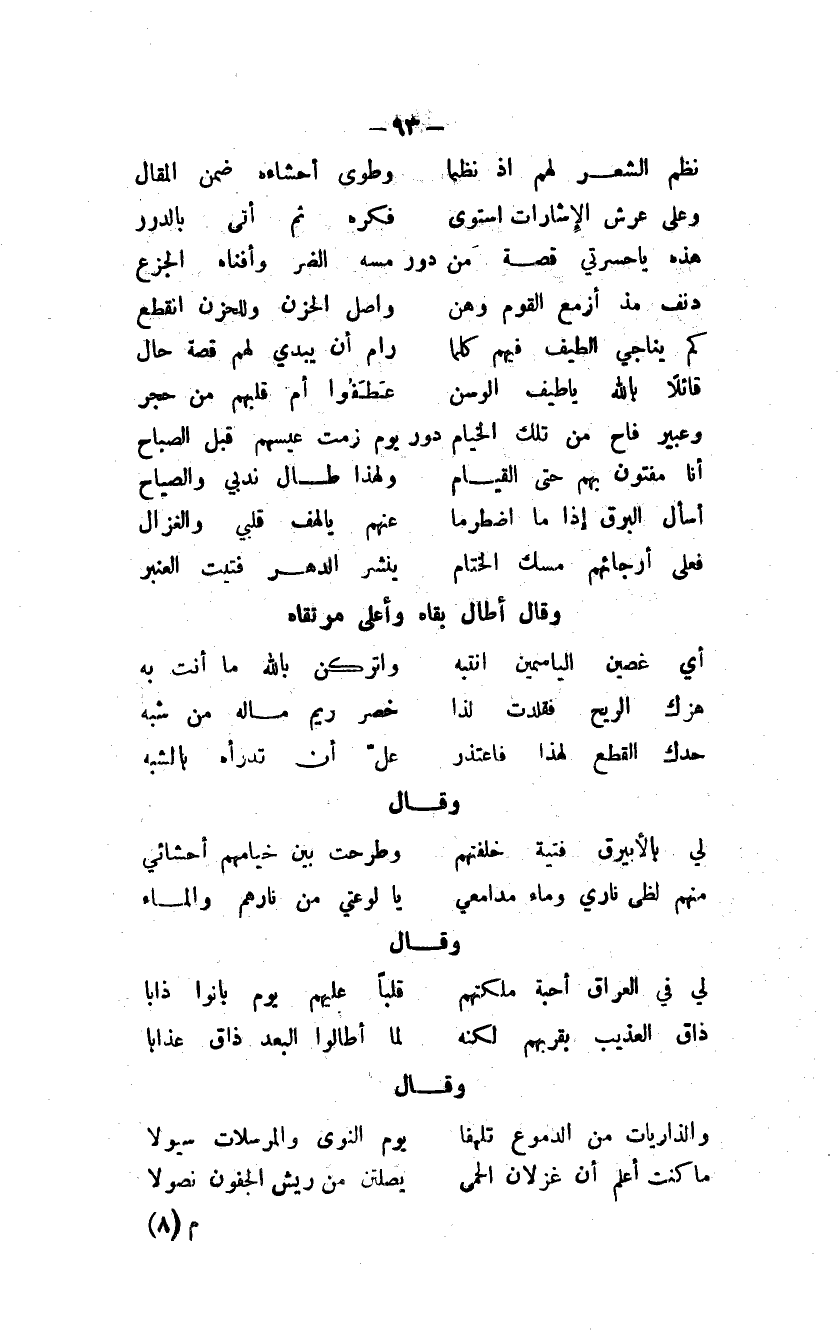 — ٩٣ —
نظم الشعـر لهم اذ نظما وطوى أحشاءه ضمن المقال
وعلى عرش الإشارات استوى فكره ثم أتى بالدرر
هذه ياحسرتي قصـة من دور مسه الضر وأفناه الجزع
دنف مذ أزمع القوم وهن واصل الحزن وللحزن انقطع
كم يناجي الطيف فيهم كلما رام أن يبدي لهم قصة حال
قائلًا بالله ياطيف الوسن عَطَفُوا أم قلبهم من حجر
وعبير فاح من تلك الخيام دور يوم زمت عيسهم قبل الصباح
أنا مفتون بهم حتى القيـام ولهذا طـال ندبي والصياح
أسأل البرق إذا ما اضطرما عنهم يالهف قلبي والغزال
فعلى أرجائهم مسك الختام ينشر الدهـر فتيت العنبر
وقال أطال بقاه وأعلى مرتقاه
أي غصين الياسمين انتبه واتركن بالله ما أنت به
هزك الريح فقلدت لذا خصر ريم مـاله من شبه
حدك القطع لهذا فاعتذر علّ أن تدرأه بالشبه
وقـال
لي بالأبيرق فتية خلفتهم وطرحت بين خيامهم أحشائي
منهم لظى ناري وماء مدامعي يا لوعتي من نارهم والمـاء
وقـال
لي في العراق أحبة ملكتهم قلباً عليهم يوم بانوا ذابا
ذاق العذيب بقربهم لكنه لما أطالوا البعد ذاق عذابا
وقـال
والذاريات من الدموع تلهفا يوم النوى والمرسلات سيولا
ما كنت أعلم أن غزلان الحمى يصلتن من ريش الجفون نصولا
م (٨)